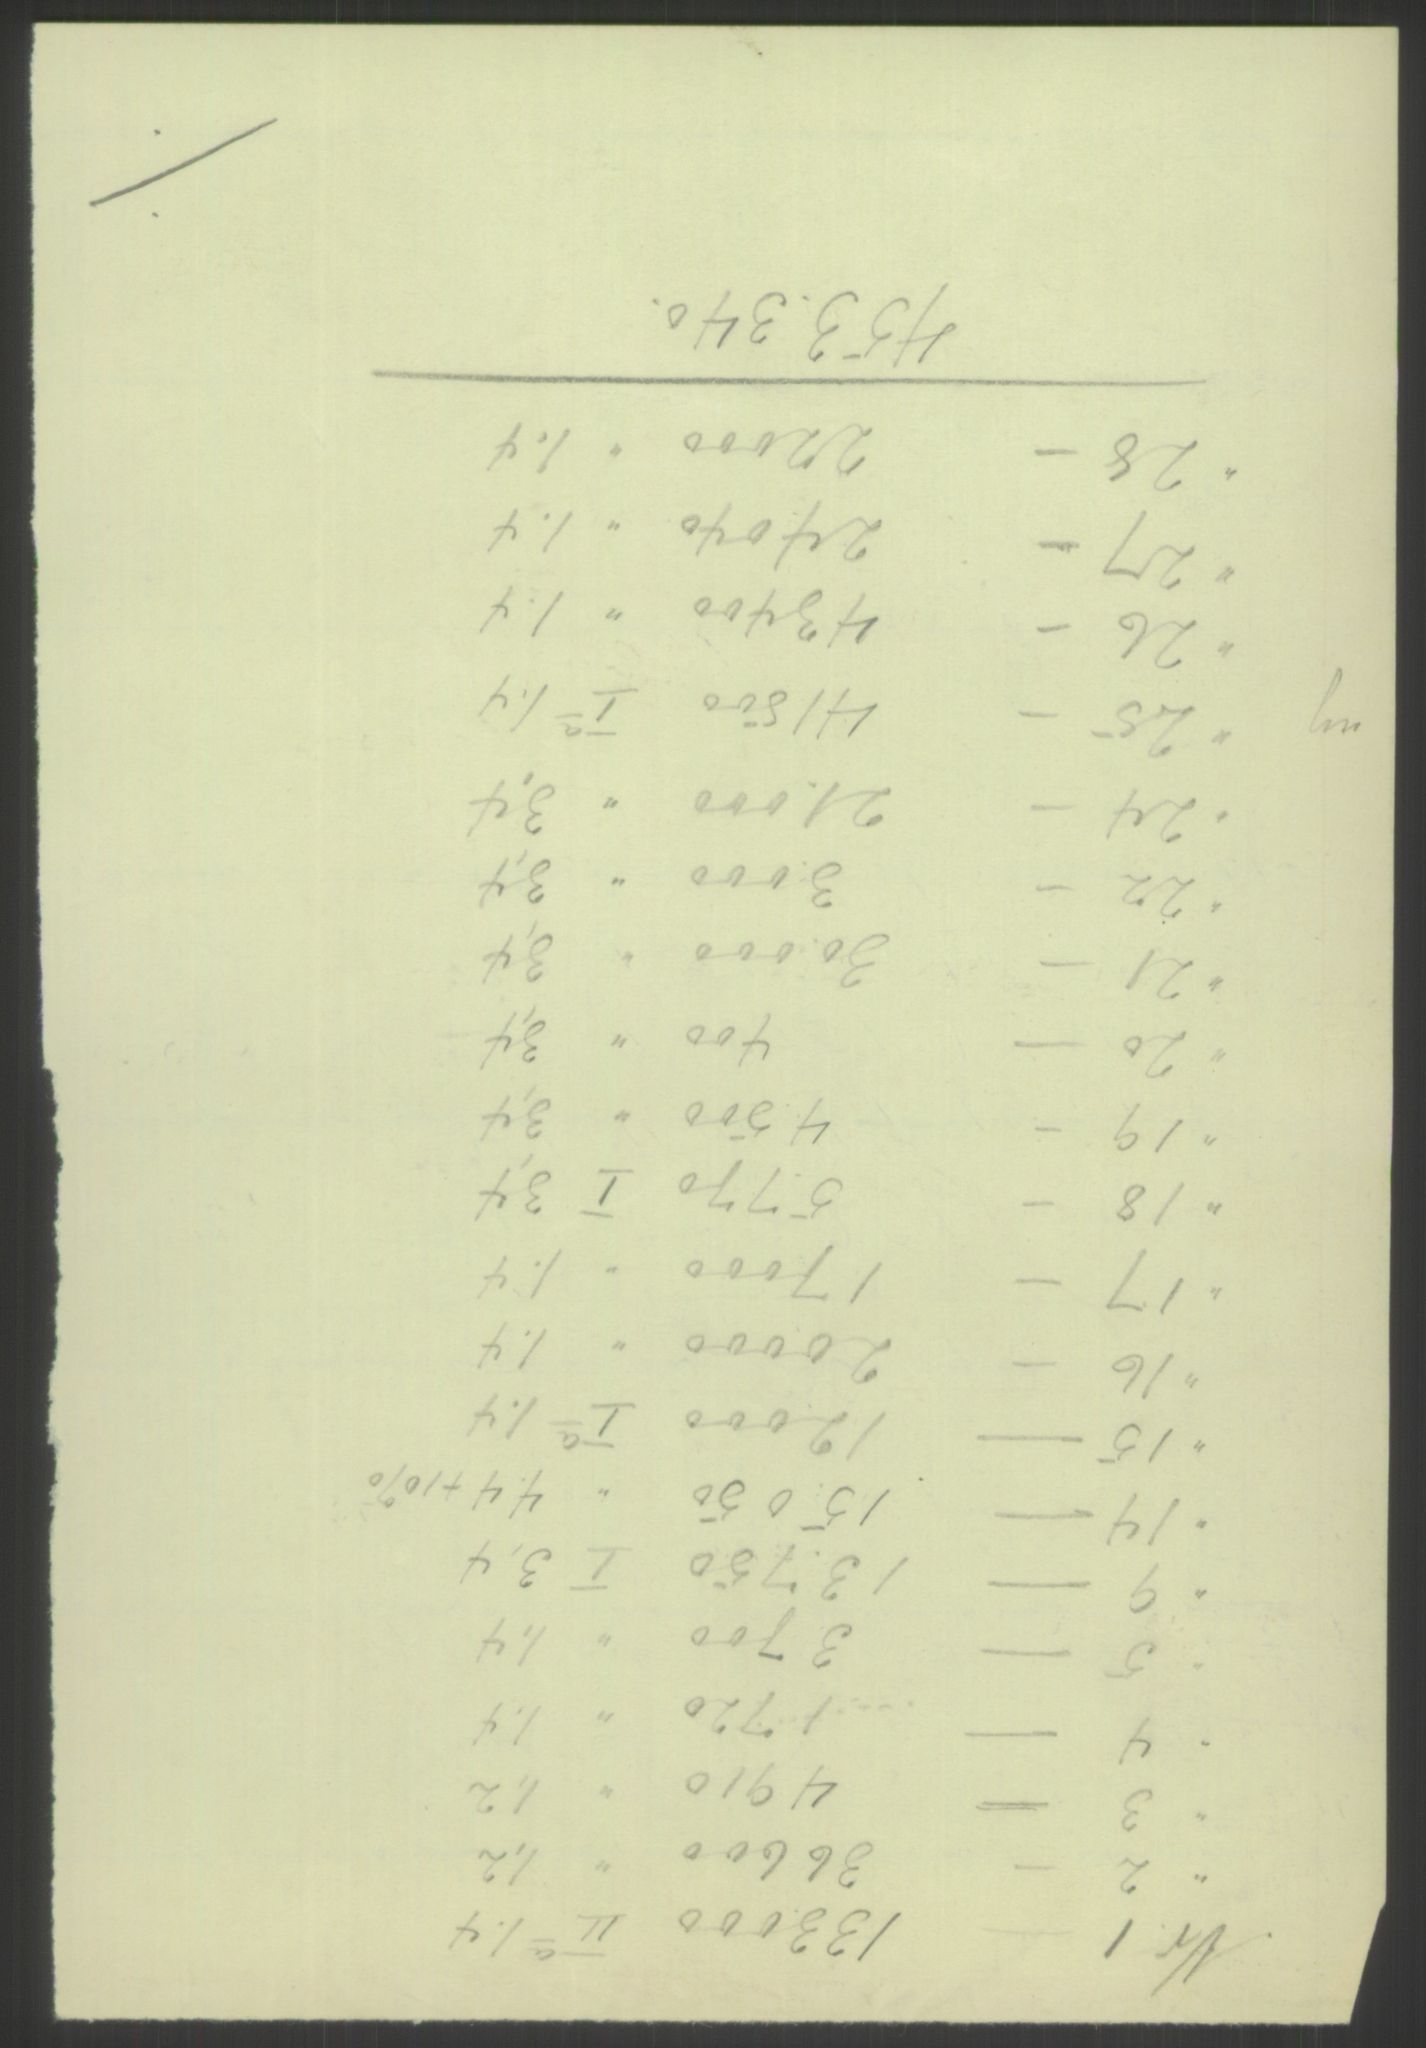 Nr. 1 — 133.000 IIa 1.4
" 2 — 36600 " 1,2
" 3 — 4910 " 1,2
" 4 — 1720 " 1.4
" 5 — 3.700 " 1,4
" 9 — 13.750 I 3,4
" 14 — 15.050 " 4.4 + 10%
" 15 — 12.000 Ia 1.4
" 16 — 20.000 " 1.4
" 17 — 17000 " 1.4
" 18 — 5.770 I 3,4
" 19 — 4.500 " 3,4
" 20 — 400 " 3,4
" 21 — 30.000 " 3,4
" 22 — 3.000 " 3,4
" 24 — 21.000 " 3,4
" 25 — 41500 Ia 1.4
" 26 — 43400 " 1.4
" 27 — 24040 " 1.4
" 28 — 22000 " 1.4
453.340.